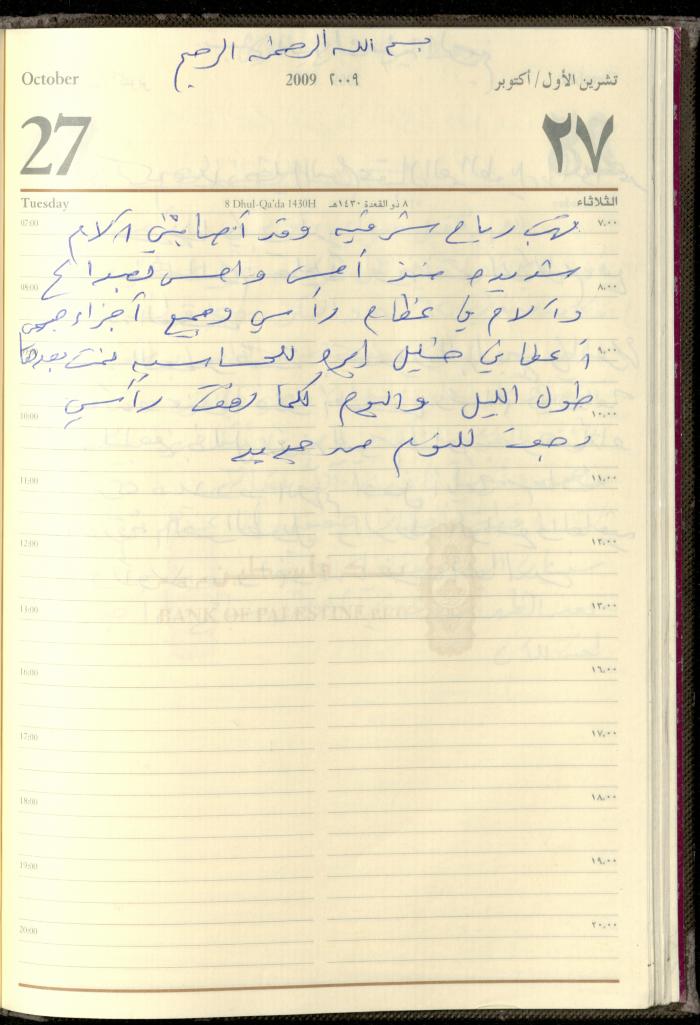 بسم الله الرحمن الرحيم
October 2009 ٢٠٠٩ تشرين الأول / أكتوبر
27 ٢٧
Tuesday 8 Dhul-Qa'da 1430H ٨ ذو القعدة ١٤٣٠هـ الثلاثاء
تهب رياح شرقيه وقد أصابتني آلام
شديده منذ أمس واحس بصداع
وآلام في عظام رأسي وجميع أجزاء جسمي
أعطاني خليل ابره للحساسيه نمت بعدها
طول الليل واليوم كلما رفعت رأسي
رجعت للنوم من جديد
07:00 ٧,٠٠
08:00 ٨,٠٠
٩,٠٠
10:00 ١٠,٠٠
11:00 ١١,٠٠
12:00 ١٢,٠٠
13:00 ١٣,٠٠
BANK OF PALESTINE
16:00 ١٦,٠٠
17:00 ١٧,٠٠
18:00 ١٨,٠٠
19:00 ١٩,٠٠
20:00 ٢٠,٠٠